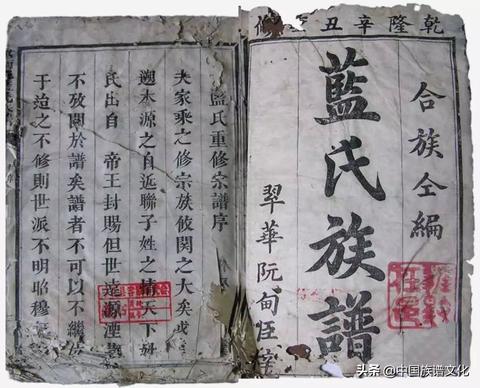 乾隆辛丑修
合族仝編
藍氏族譜
翠華阮甸
藍氏重修宗譜序
夫家乘之修宗族攸関之大矣或
遡木源之自近聯子姓之情天下
氏出自 帝王封賜但世遠源湮
不攷関於譜矣譜者不可以不繼
于造之不修則世派不明昭穆
头条 @中国族谱文化